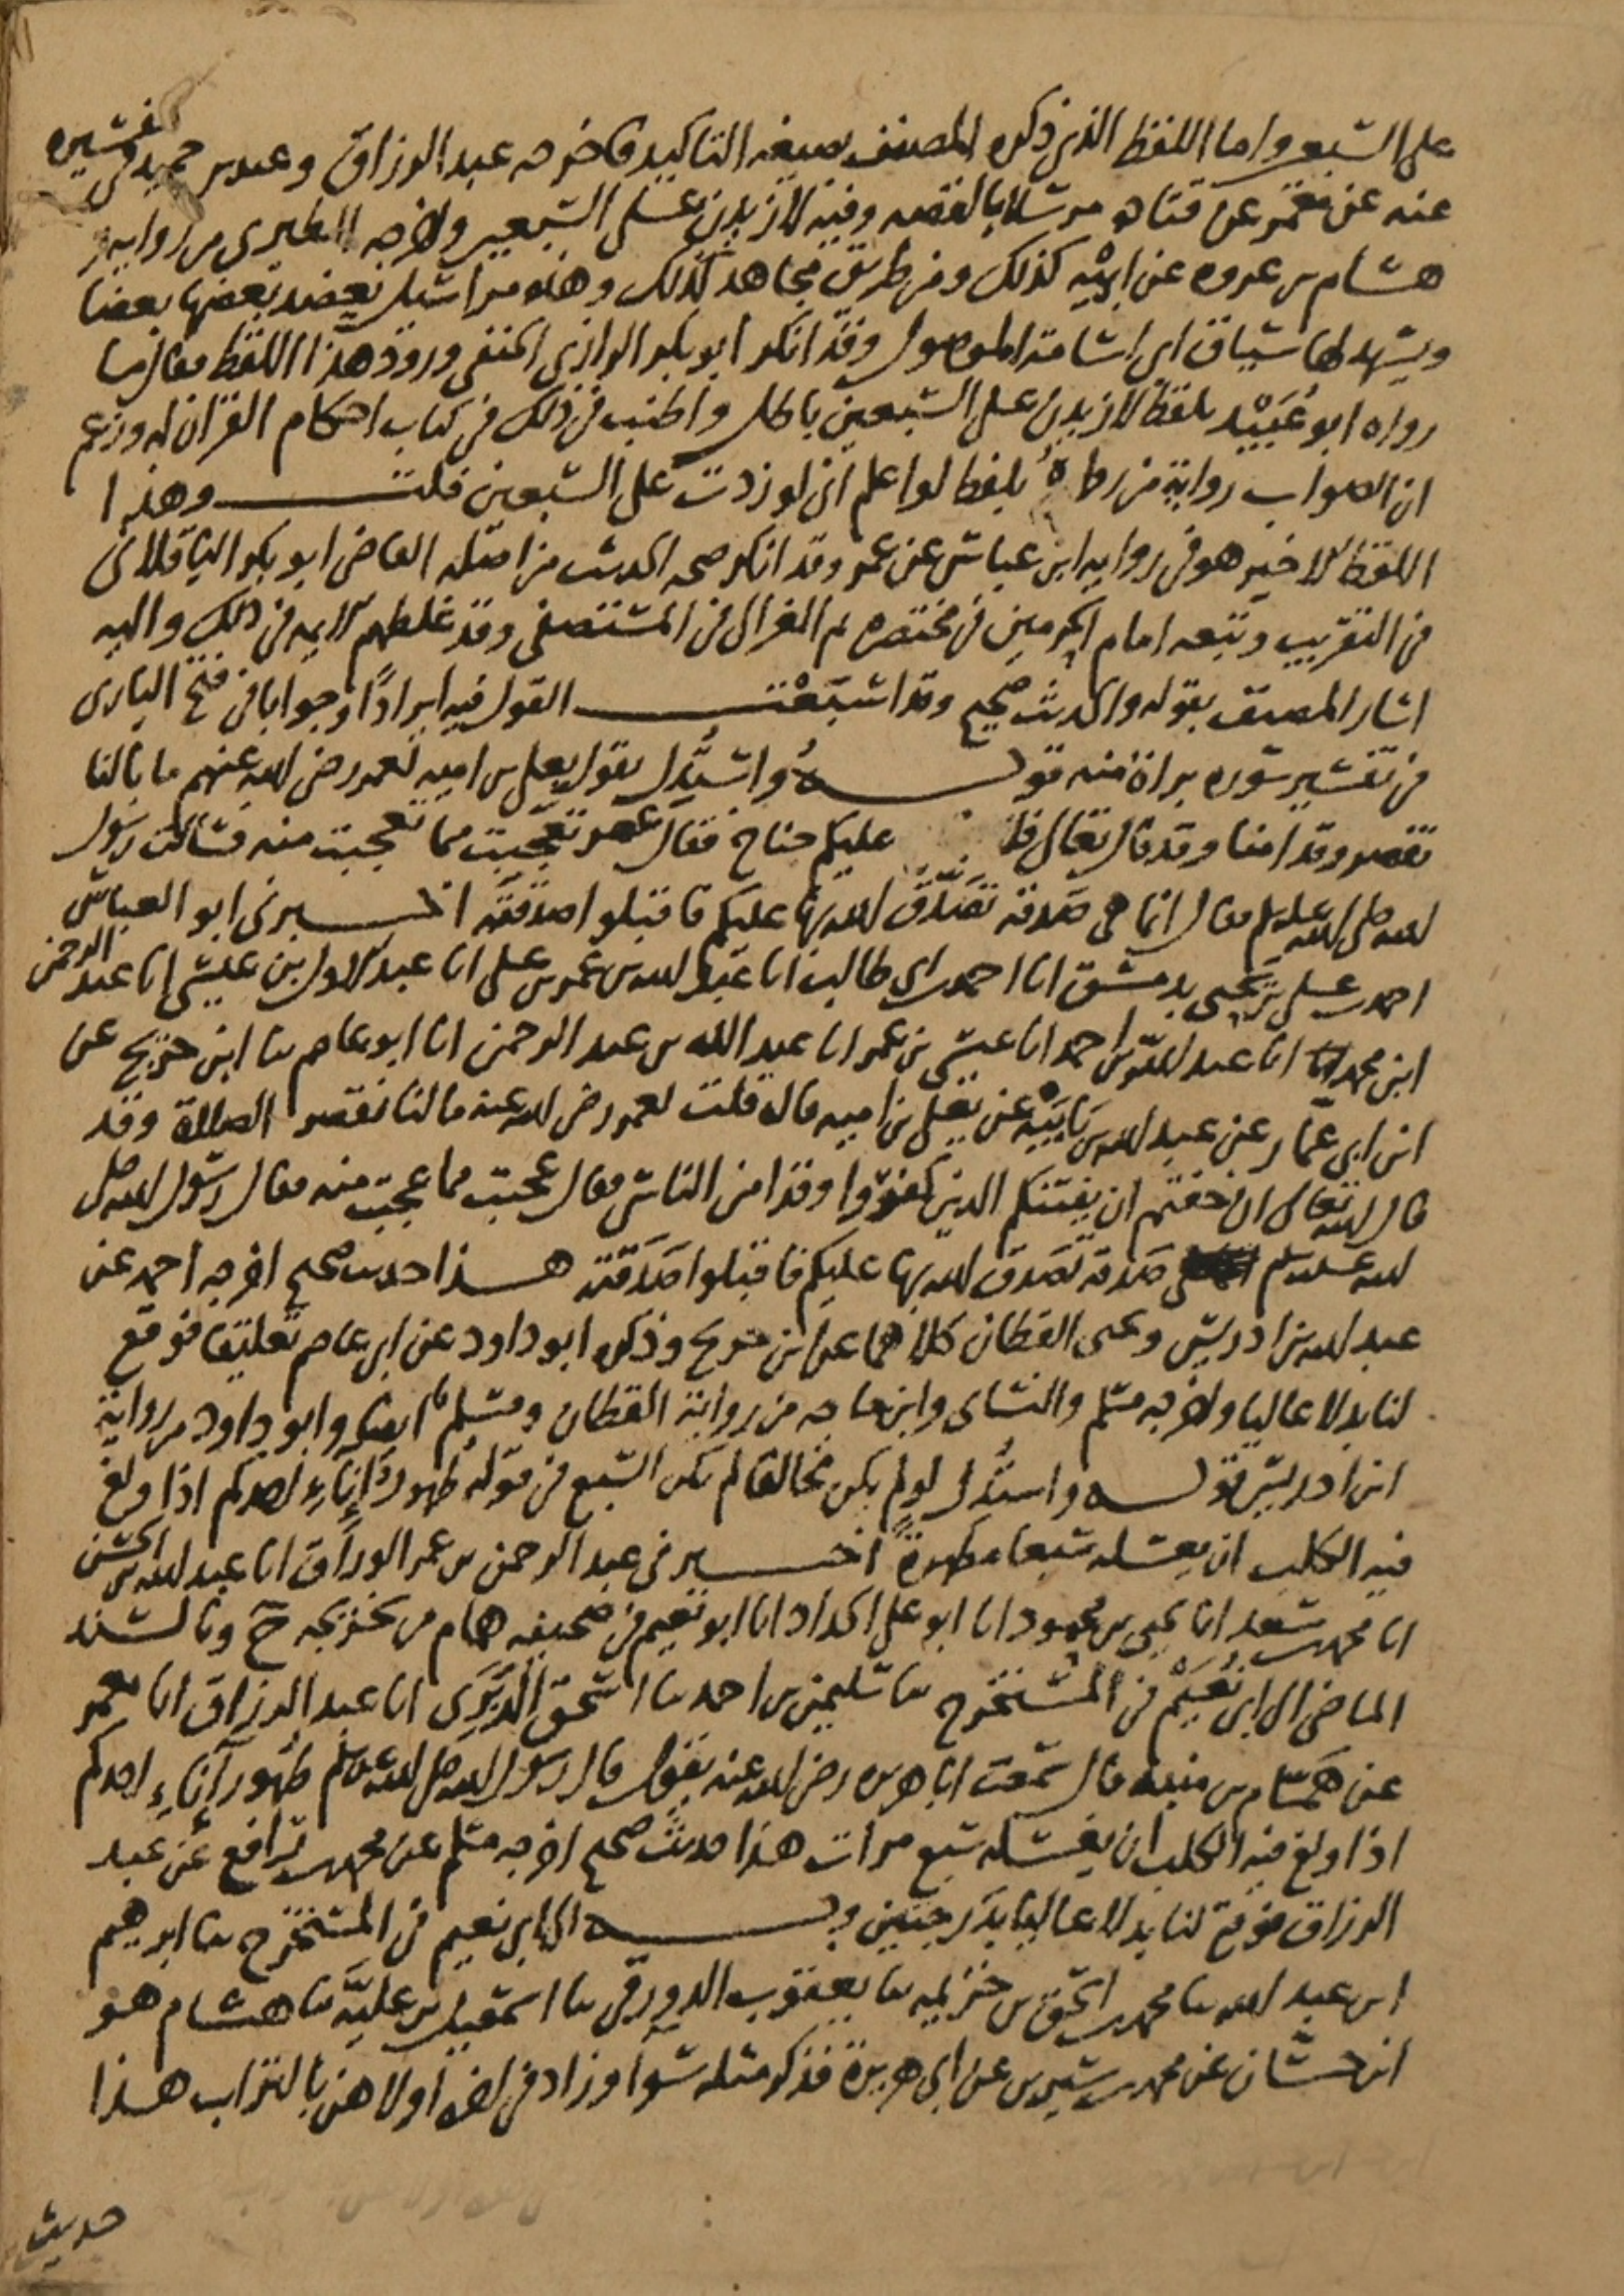 على السبعين واما اللفظ الذي ذكره المصنف بصيغة التاكيد فاخرجه عبد الرزاق وعبد بن حميد في تفسيره
عنه عن معمر عن قتادة مرسلا بالقصه وفيه لازيدن على السبعين واخرجه الطبري من رواية
هشام بن عروه عن ابيه كذلك ومن طريق مجاهد كذلك وهذه مراسيل يعضد بعضها بعضا
ويشهد لها سياق ابي اسامة الموصول وقد انكر ابو بكر الرازي الحنفي ورود هذا اللفظ فقال ما
رواه ابو عُبَيْد بلفظ لازيدن على السبعين باطل واطنب في ذلك في كتاب احكام القران له وزعم
ان الصواب رواية من رواه بلفظ لو اعلم اني لو زدت على السبعين قلت وهذا
اللفظ الاخير هو في رواية ابن عباس عن عمر وقد انكر صحه الحديث من اصله القاضي ابو بكر الباقلاني
في التقريب وتبعه امام الحرمين في مختصره ثم الغزالي في المستصفى وقد غلطهم الايمه في ذلك واليه
اشار المصنف بقوله والحديث صحيح وقد اشبَعْت القول فيه ايرادًا وجوابا في فتح الباري
في تفسير سوره براة منه قوله واستُدل بقول يعلى بن اميه لعمر رضي الله عنهم ما بالنا
نقصر وقد امنا وقد قال تعالى فلا عليكم جناح فقال عمر تعجبت مما تعجبت منه فسالت رسول
الله صلى الله عليه وسلم فقال انما هي صَدقة تصَدَّق الله بها عليكم فاقبلوا صدقته اخبرني ابو العباس
احمد بن علي بن يحيى بدمشق انا احمد بن ابي طالب انا عبد الله بن عمر بن علي انا عبد الاول بن عيسى انا عبد الرحمن
ابن محمد انا عبد الله بن احمد انا عيسى بن عمر انا عبد الله بن عبد الرحمن انا ابو عاصم ثنا ابن جريج عن
ابن ابي عمار عن عبد الله بن بَابَيْه عن يعلى بن اميه قال قلت لعمر رضي الله عنه ما لنا نقصر الصلاة وقد
قال الله تعالى ان خفتم ان يفتنكم الذين كفروا وقد امن الناس فقال عجبت مما عجبت منه فقال رسول الله صلى
الله عليه وسلم صَدقة تصَدق الله بها عليكم فاقبلوا صَدَقته هذا حديث صحيح اخرجه احمد عن
عبد الله بن ادريس ويحيى القطان كلاهما عن ابن جريج وذكره ابو داود عن ابي عاصم تعليقا فوقع
لنا بدلا عاليا واخرجه مسلم والنساي وابن ماجه من رواية القطان ومسلم ايضا وابو داود من رواية
ابن ادريس قوله واستُدل لو لم يكن مخالفا لم تكن السبع في قوله طهور إناءِ احدكم اذا ولغ
فيه الكلب ان يغسله سبعا مطهرةً اخبرني عبد الرحمن بن عمر الوراق انا عبد الله بن الحسن
انا محمد بن سعد انا يحيى بن محمود انا ابو علي الحداد انا ابو نعيم في صحيفه همام من تخريجه ح وبالسند
الماضي الى ابي نُعَيْم في المستخرج ثنا سليمن بن احمد ثنا اسحق الدَّبَرَي انا عبد الرزاق انا معمر
عن همّام بن منبه قال سمعت ابا هريره رضي الله عنه يقول قال رسول الله صلى الله عليه وسلم طهور اناءِ احدكم
اذا ولغ فيه الكلب ان يغسله سبع مرات هذا حديث صحيح اخرجه مسلم عن محمد بن رافع عن عبد
الرزاق فوقع لنا بدلا عاليا بدَرجتين وبه الى ابي نعيم في المستخرج ثنا ابراهيم
ابن عبد الله ثنا محمد بن اسحق بن خزيمه ثنا يعقوب الدورقي ثنا اسمعيل بن عليَّة ثنا هشام هو
ابن حسّان عن محمد بن سيرين عن ابي هريرة فذكر مثله سوا وزاد في اخره اولاهن بالتراب هذا
حديث